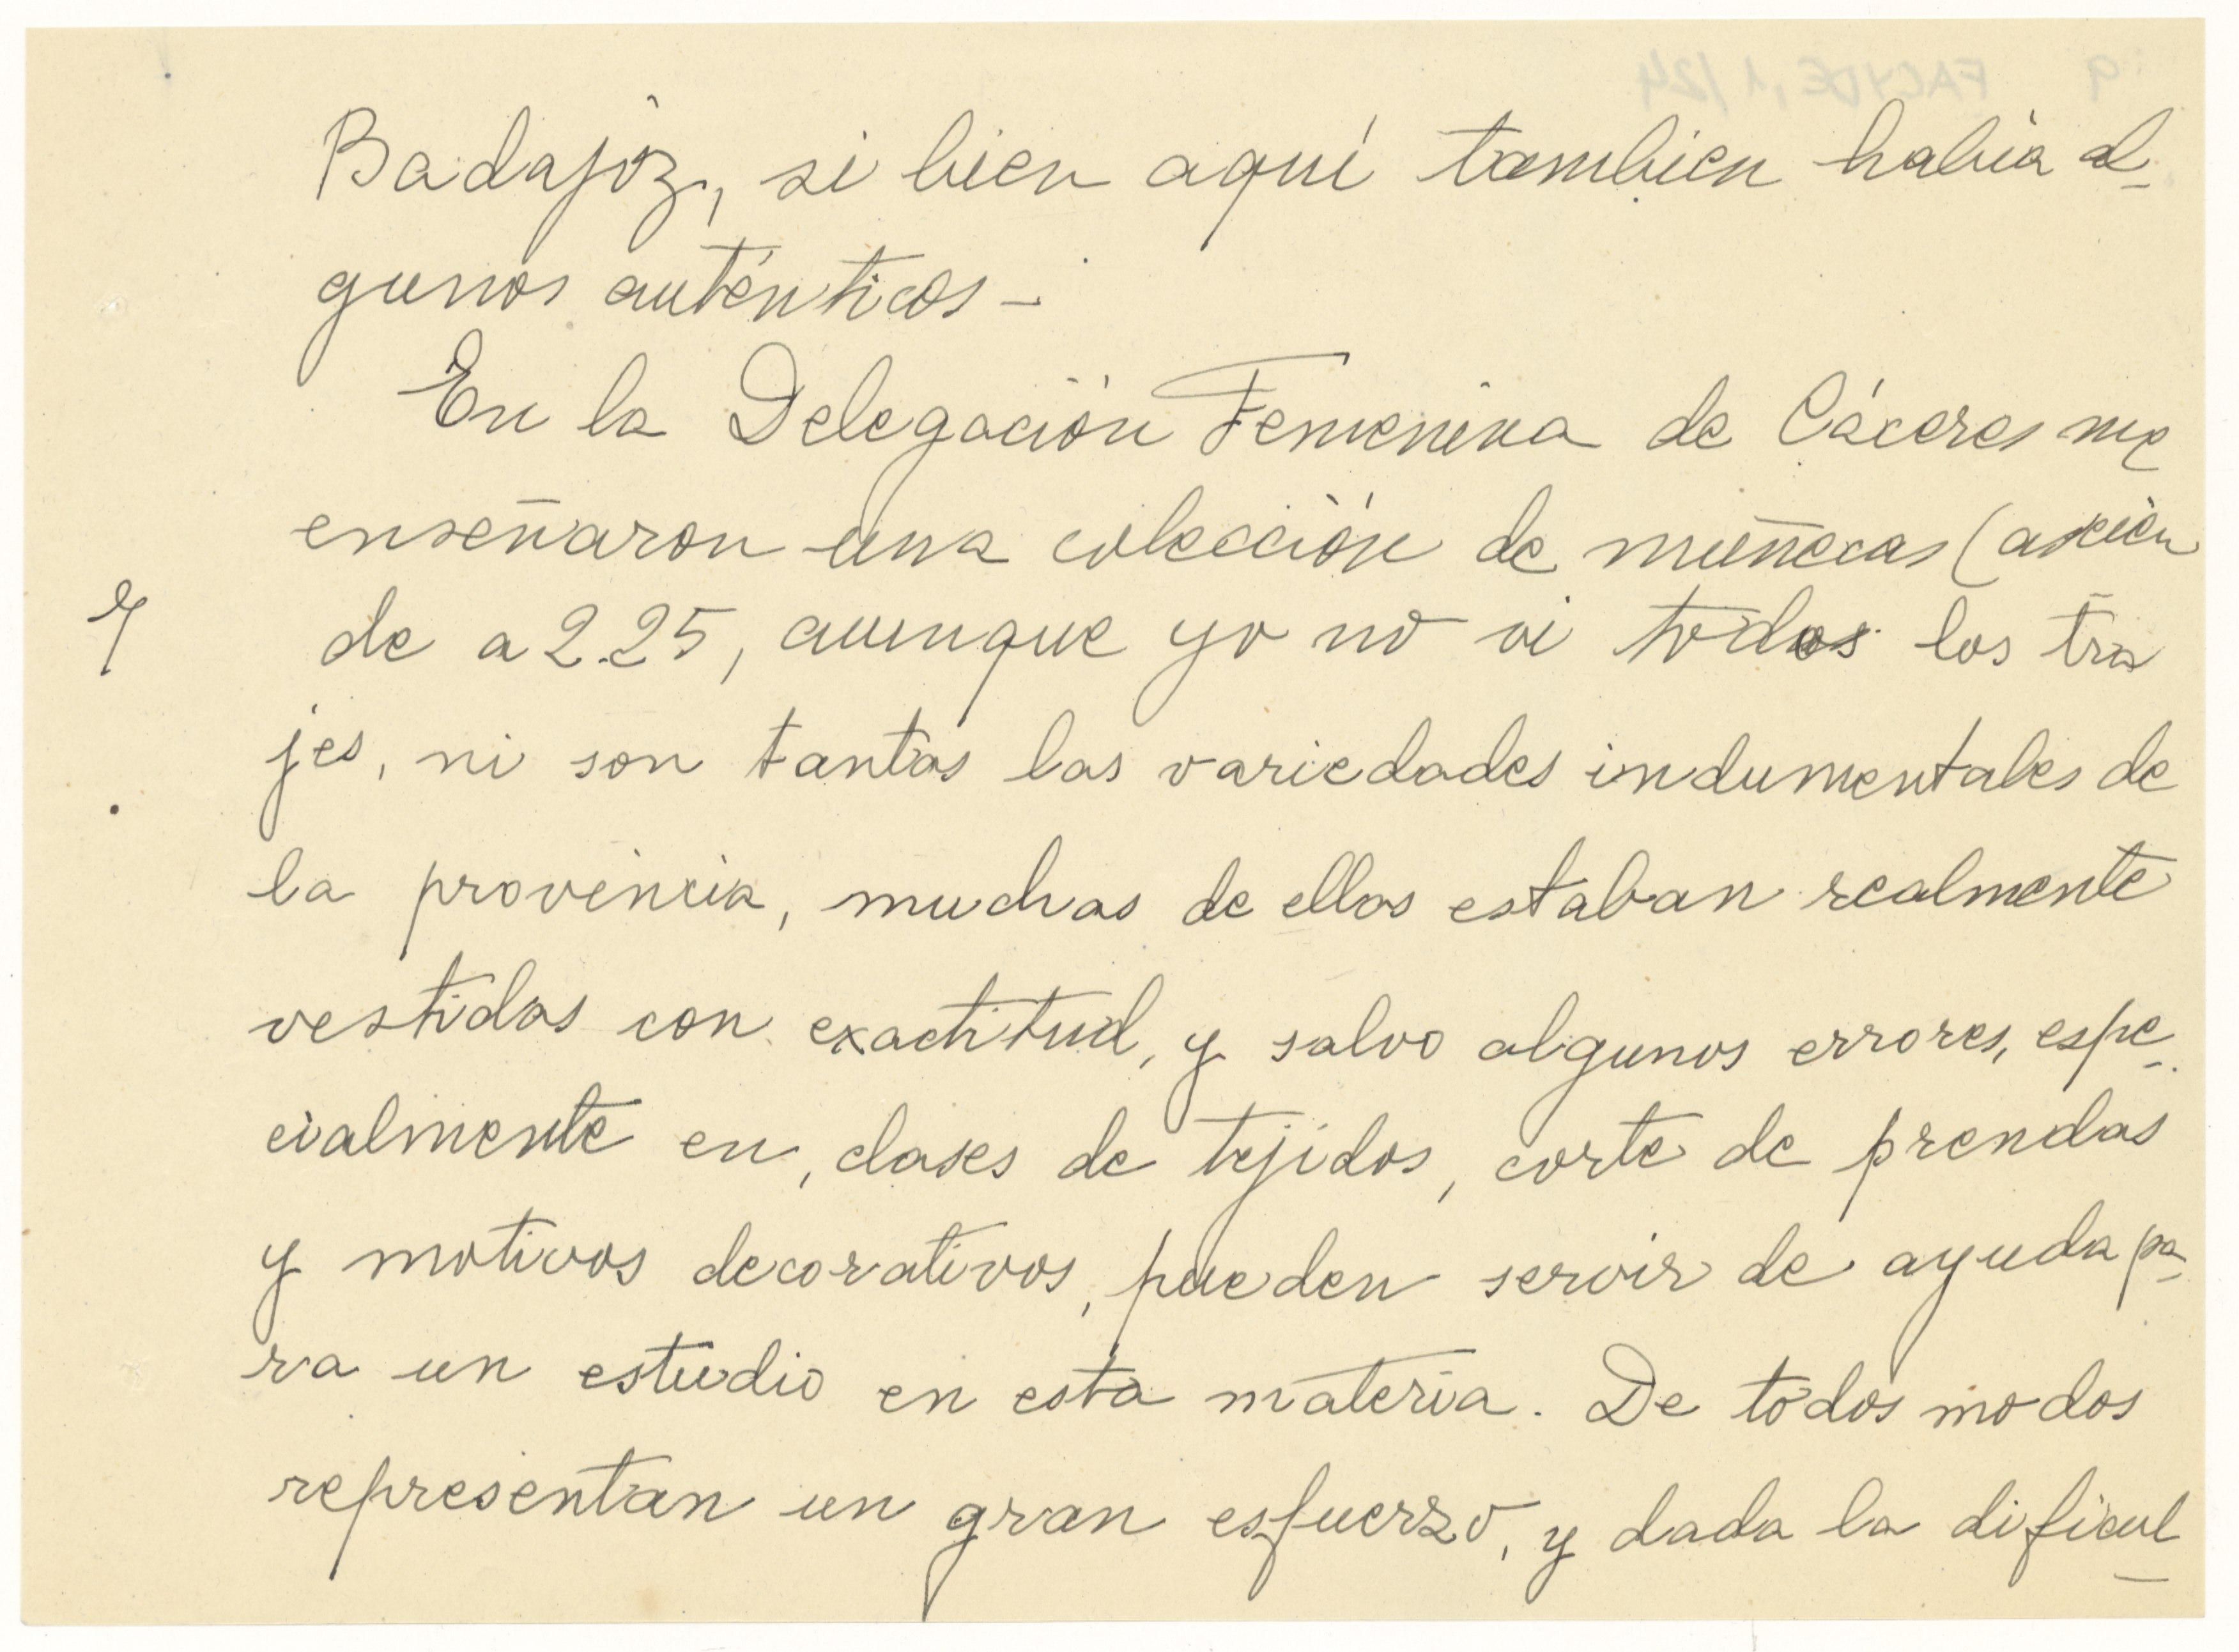 Badajoz, si bien aquí tambien había al-
gunos auténticos -
En la Delegación Femenina de Cáceres me
enseñaron una colección de muñecas (ascien
de a 225, aunque yo no vi todos los tra
jes, ni son tantas las variedades indumentales de
la provincia, muchas de ellas estaban realmente
vestidas con exactitud, y salvo algunos errores, espe-
cialmente en, clases de tejidos, corte de prendas
y motivos decorativos, pueden servir de ayuda pa-
ra un estudio en esta materia. De todos modos
representan un gran esfuerzo, y dada la dificul-